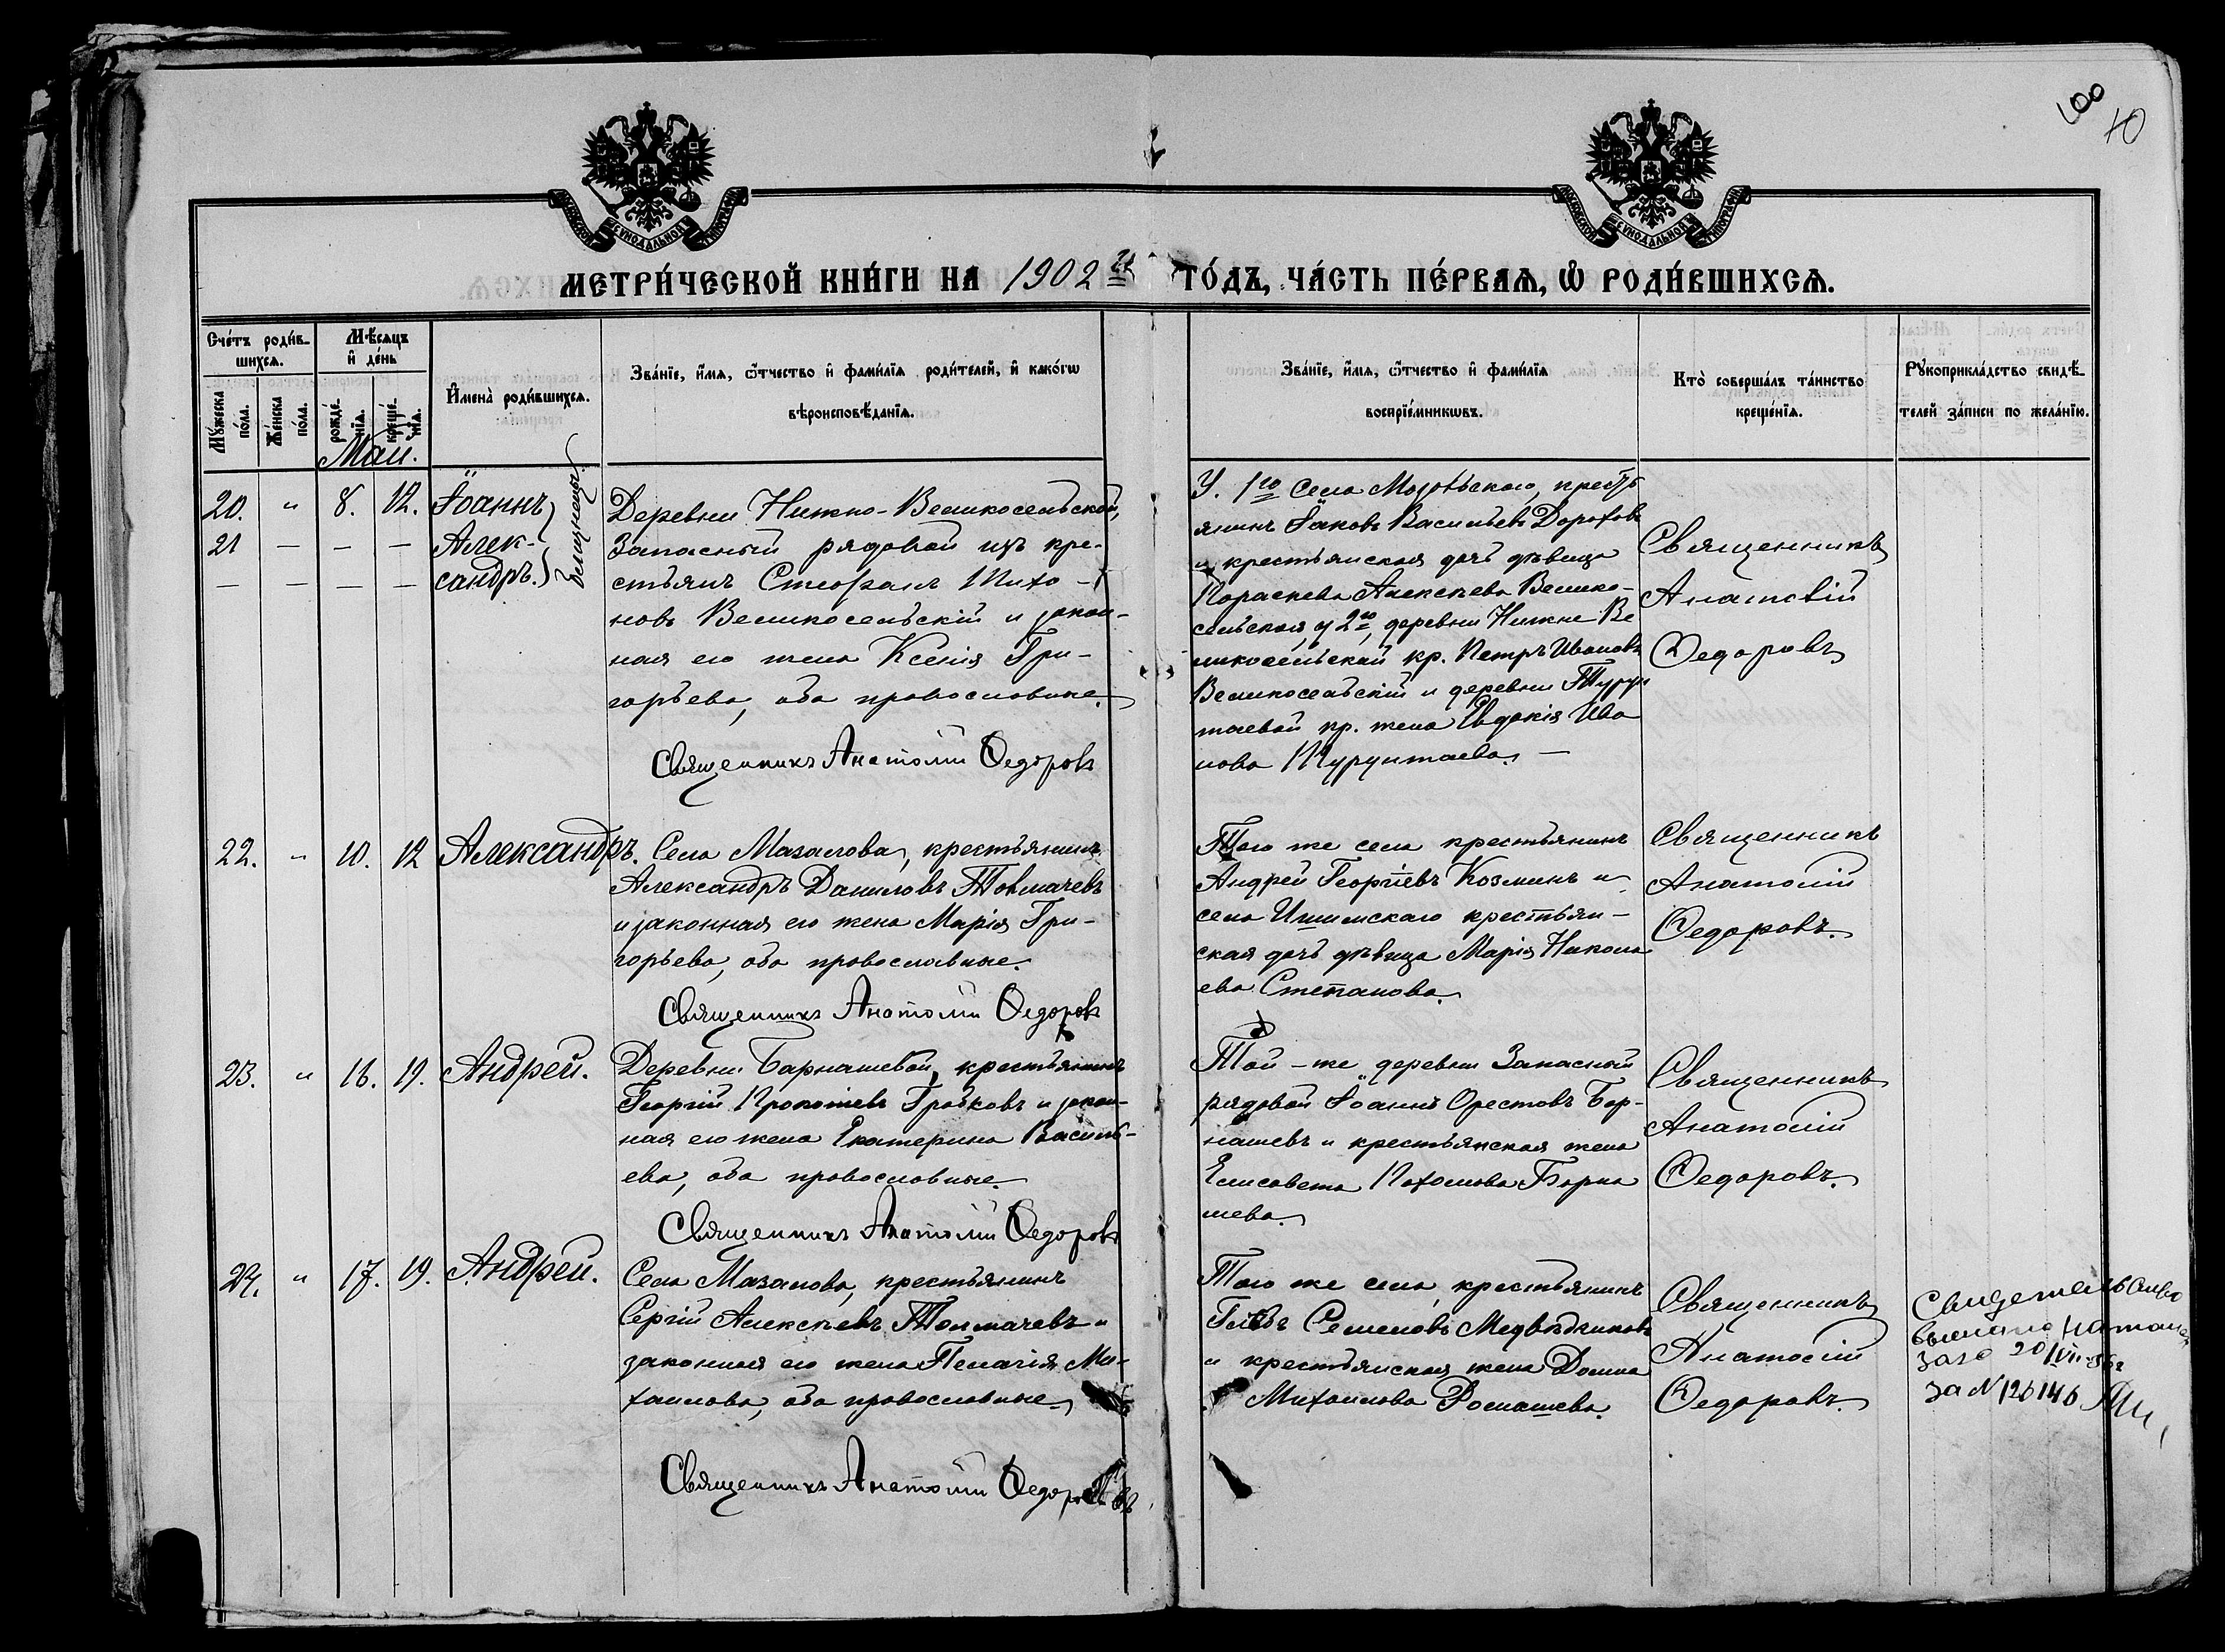 100
10
МОСКОВСКОЙ СУНОДАЛЬНОЙ ТИПОГРАФІИ
МОСКОВСКОЙ СУНОДАЛЬНОЙ ТИПОГРАФІИ
МЕТРИ́ЧЕСКОЙ КНИ́ГИ НА 1902й ГО́ДЪ, ЧА́СТЬ ПЕ́РВАѦ, Ѡ҆ РОДИ́ВШИХСѦ.
Сче́тъ роди́в-
шихсѧ.
Мꙋ́жеска
по́ла.
Же́нска
по́ла.
Мѣ́сѧцъ
и҆ де́нь
рожде́-
нїѧ.
креще́-
нїѧ.
И҆мена̀ роди́вшихсѧ.
Зва́нїе, и҆́мѧ, ѻ҆́тчество и҆ фами́лїѧ роди́телей, и҆ како́гѡ
вѣроисповѣ́данїѧ.
Зва́нїе, и҆́мѧ, ѻ҆́тчество и҆ фами́лїѧ
воспрїе́мникѡвъ.
Кто̀ соверша́лъ та́инство
креще́нїѧ.
Рꙋкоприкла́дство свидѣ́-
телей за́писи по жела́нїю.
Май.
20. " 8. 12. Іоаннъ
21 — — — Алек-
— — — — сандръ.
близнецы.
Деревни Нижно-Великосельской,
Запасный рядовой изъ кре-
стьянъ Стефанъ Тихо-
новъ Великосельскій и закон-
ная его жена Ксенія Гри-
горьева, оба православные.
Священникъ Анатолій Ѳедоровъ
У. 1го Села Мазаловскаго, кресть
янинъ Іаковъ Васильевъ Дороховъ
и крестьянская дочь дѣвица
Параскева Алексѣева Велико-
сельская, у 2го, деревни Нижне Ве
ликосельской кр. Петръ Ивановъ
Великосельскій и деревни Турун
таевой кр. жена Евдокія Ива
нова Турунтаева. —
Священникъ
Анатолій
Ѳедоровъ
22. " 10. 12 Александръ.
Села Мазалова, крестьянинъ
Александръ Даниловъ Толмачевъ
и законная его жена Марія Гри-
горьева, оба православные.
Священникъ Анатолій Ѳедоровъ
Того же села крестьянинъ
Андрей Георгіевъ Козминъ и
села Ишимскаго крестьян-
ская дочь дѣвица Марія Никола
ева Степанова.
Священникъ
Анатолій
Ѳедоровъ.
23. " 16. 19. Андрей.
Деревни Барнашевой, крестьянинъ
Георгій Прокопіевъ Грабковъ и закон-
ная его жена Екатерина Василь-
ева, оба православные.
Священникъ Анатолій Ѳедоровъ
Той-же деревни Запасный
рядовой Іоаннъ Орестовъ Бар-
нашевъ и крестьянская жена
Елисавета Пахомова Барна
шева.
Священникъ
Анатолій
Ѳедоровъ.
24. " 17. 19. Андрей.
Села Мазалова, крестьянинъ
Сергій Алексѣевъ Толмачевъ и
законная его жена Пелагія Ми-
хаилова, оба православные.
Священникъ Анатолій Ѳедоровъ
Того же села, крестьянинъ
Глѣбъ Семеновъ Медвѣдчиковъ
и крестьянская жена Домна
Михаилова Ромашева.
Священникъ
Анатолій
Ѳедоровъ.
Свидетельство
выслано
20/VII-56г
за N 126146